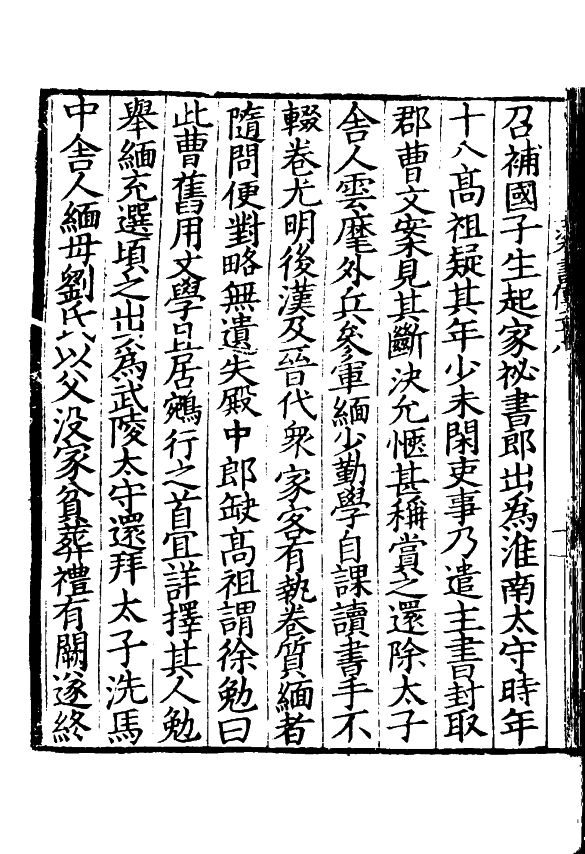 召補國子生起家祕書郎出為淮南太守時年
十八高祖疑其年少未閑吏事乃遣主書封取
郡曹文案見其斷決允愜甚稱賞之還除太子
舍人雲麾外兵參軍緬少勤學自課讀書手不
輟卷尤明後漢及晉代衆家客有執卷質緬者
隨問便對略無遺失殿中郎缺高祖謂徐勉曰
此曹舊用文學且居鵷行之首宜詳擇其人勉
舉緬充選頃之出為武陵太守還拜太子洗馬
中舍人緬母劉氏以父没家貧葬禮有闕遂終